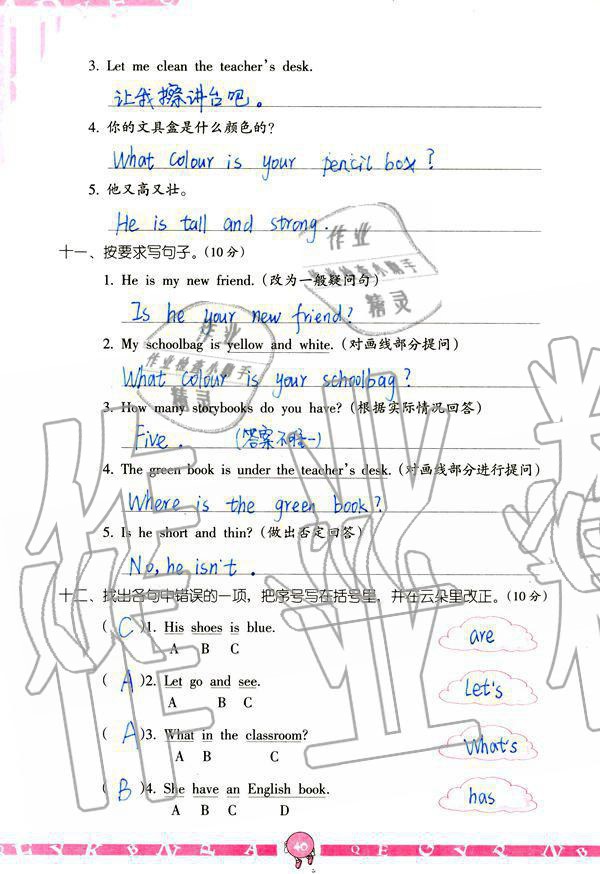 3. Let me clean the teacher's desk.
让我擦讲台吧。
4. 你的文具盒是什么颜色的?
What colour is your pencil box?
5. 他又高又壮。
He is tall and strong.
十一、按要求写句子。(10分)
1. He is my new friend. (改为一般疑问句)
Is he your new friend?
2. My schoolbag is yellow and white. (对画线部分提问)
What colour is your schoolbag?
3. How many storybooks do you have? (根据实际情况回答)
Five. (答案不唯一)
4. The green book is under the teacher's desk. (对画线部分进行提问)
Where is the green book?
5. Is he short and thin? (做出否定回答)
No, he isn't.
十二、找出各句中错误的一项，把序号写在括号里，并在云朵里改正。(10分)
( C )1. His shoes is blue. are
A B C
( A )2. Let go and see. Let's
A B C
( A )3. What in the classroom? What's
A B C
( B )4. She have an English book. has
A B C D
40